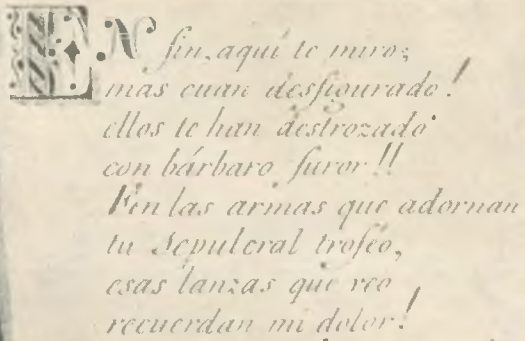 EN fin, aquí te miro;
mas cuan desfigurado!
ellos te han destrozado
con bárbaro furor!!
Y en las armas que adornan
tu Sepulcral troféo,
esas lanzas que veo
recuerdan mi dolor!